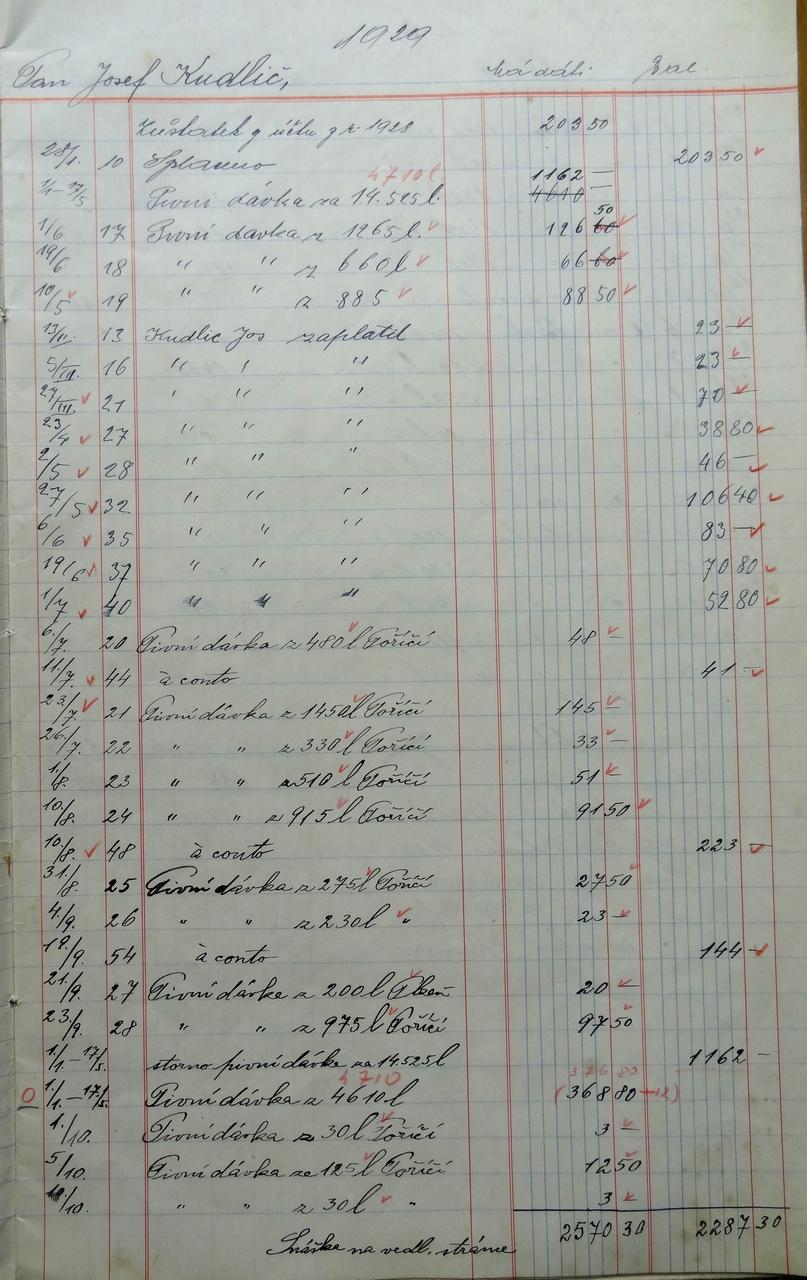 1929
Pan Josef Kudlič, Má dáti Dal
Zůstatek z účtu z r. 1928 203 50
28/1. 10 Splaceno 203 50
4710 l
1/1 – 17/5 Pivní dávka za 14.525 l. 1162 — 4610 —
50
1/6 17 Pivní dávka z 1265 l. 126 60
19/6 18 " " z 660 l 66 60
10/5 19 " " z 885 88 50
13/II. 13 Kudlic Jos zaplatil 23 —
5/III. 16 " " " 23 —
27/III. 21 " " " 70 —
23/4 27 " " " 38 80
2/5 28 " " " 46 —
27/5 32 " " " 106 40
6/6 35 " " " 83 —
19/6 37 " " " 70 80
1/7 40 " " " 52 80
6./7. 20 Pivní dávka z 480 l Poříčí 48 —
11./7. 44 à conto 41 —
23./7. 21 Pivní dávka z 1450 l Poříčí 145 —
26./7. 22 " " z 330 l Poříčí 33 —
1./8. 23 " " z 510 l Poříčí 51 —
10./8. 24 " " z 915 l Poříčí 91 50
10./8. 48 à conto 223 —
31./8. 25 Pivní dávka z 275 l Poříčí 27 50
4./9. 26 " " z 230 l " 23 —
19./9. 54 à conto 144 —
21./9. 27 Pivní dávka z 200 l Plzeň 20 —
23./9. 28 " " z 975 l Poříčí 97 50
1./1. – 17/5. storno pivní dávka za 14.525 l 1162 —
4710 376 80
0 1./1. – 17/5. Pivní dávka z 4610 l (368 80 + 12)
1./10. Pivní dávka z 30 l Poříčí 3 —
5/10. Pivní dávka ze 125 l Poříčí 12 50
/10. " " z 30 l " 3 —
Snáška na vedl. stránce 2570 30 2287 30